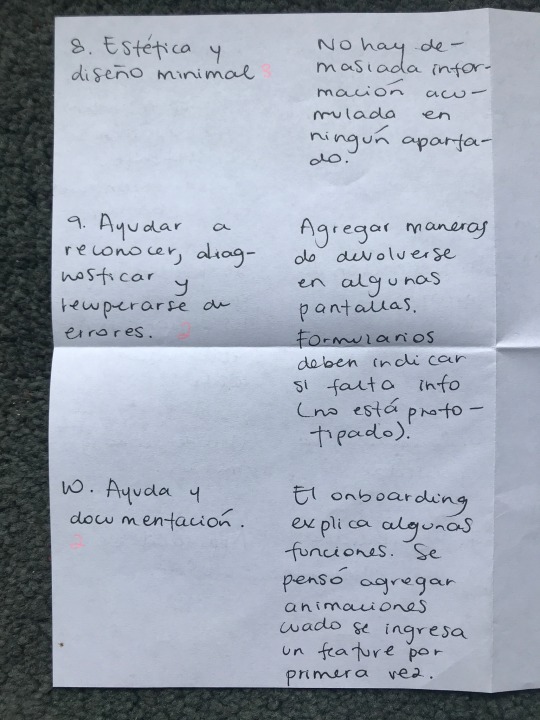 8. Estética y
diseño minimal 3
No hay de-
masiada infor-
mación acu-
mulada en
ningún aparta-
do.
9. Ayudar a
reconocer, diag-
nosticar y
recuperarse de
errores. 2
Agregar maneras
de devolverse
en algunas
pantallas.
Formularios
deben indicar
si falta info
(no está proto-
tipado).
10. Ayuda y
documentación.
2
El onboarding
explica algunas
funciones. Se
pensó agregar
animaciones
cuado se ingresa
un feature por
primera vez.